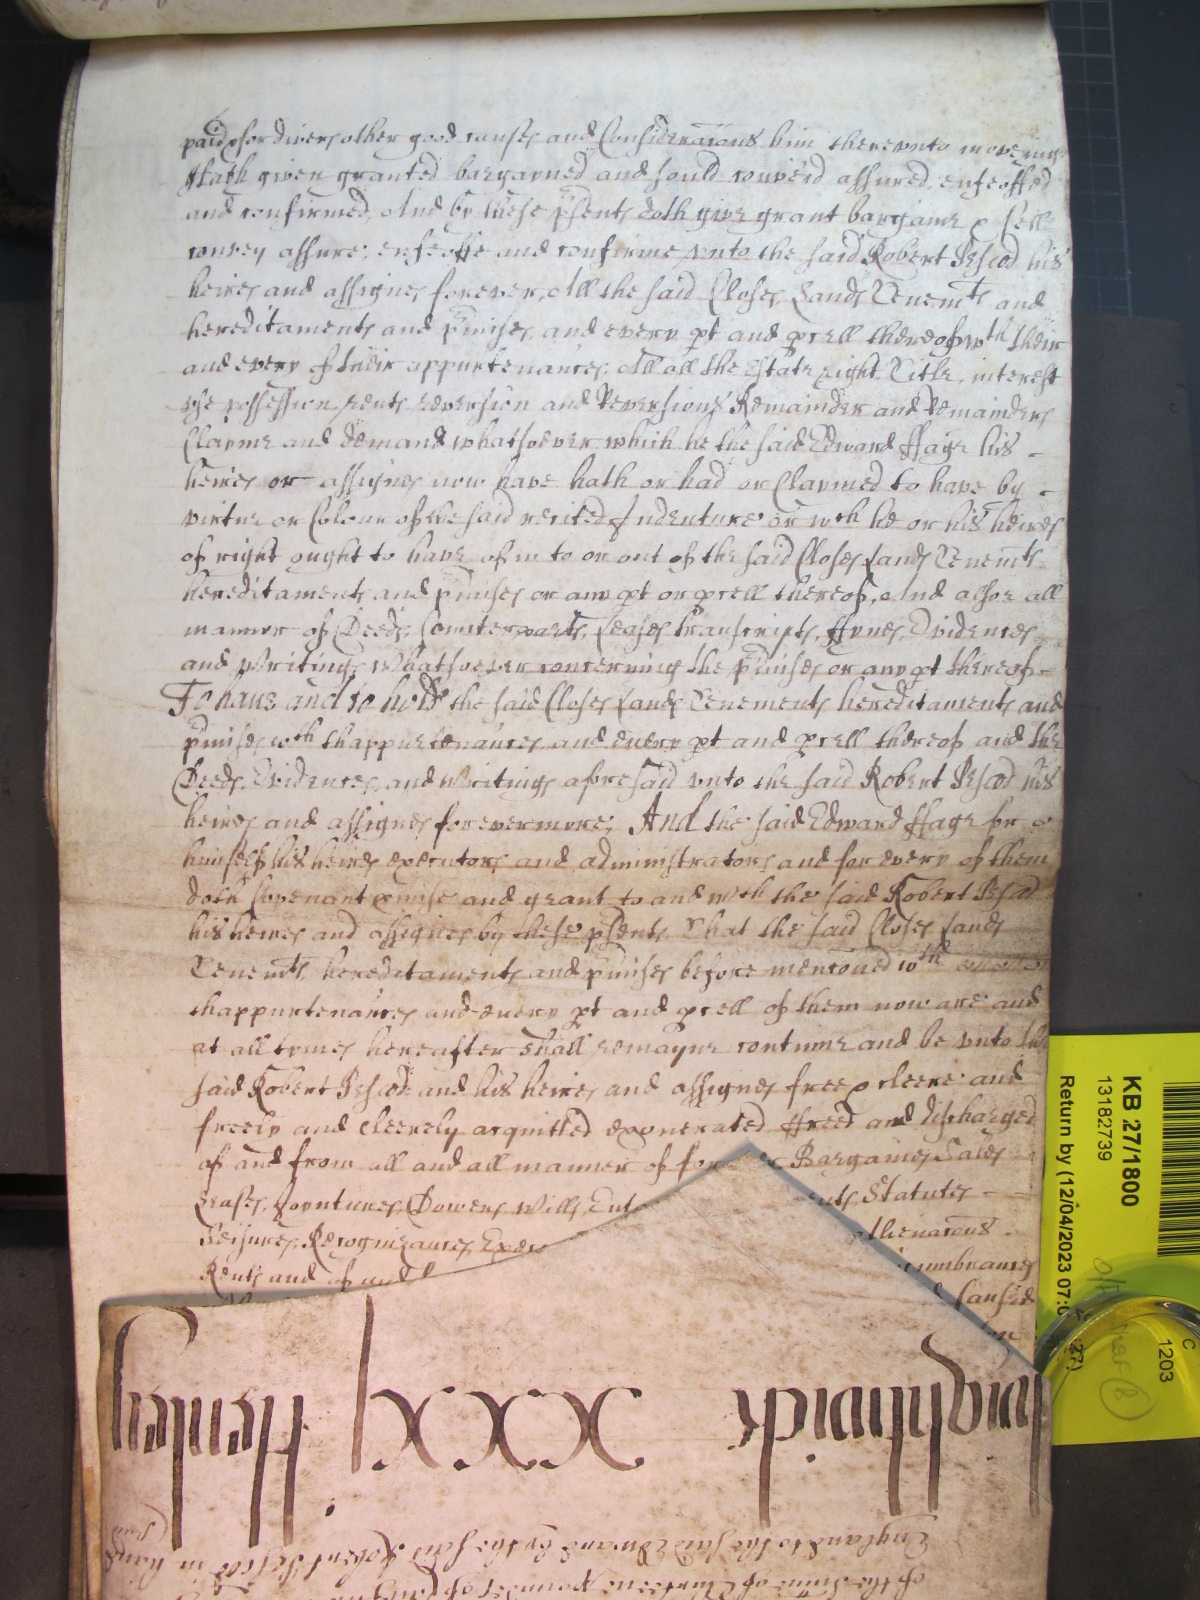 paid & for divers other good causes and Consideracons him thereunto moveing
Hath given granted bargayned and sould conveid assured enfeoffed
and confirmed, And by these p̃sents doth give grant bargaine & sell
convey assure enfeoffe and confirme vnto the said Robert Pescod his
heires and assignes forever, All the said Closes Lands Tenemts and
hereditaments and p̃mises, and every pt and prcell thereof wth their
and every of their appurtenances, All all the Estate right Title, interest
vse possession, rents, reversion and Reversions Remainder and Remainders
Clayme and demand whatsoever which he the said Edward ffage his
heires or assignes now have hath or had or Claymed to have by
virtue or Colour of the said recited Indenture or wch he or his heires
of right ought to have of in to or out of the said Closes Lands Tenemts
hereditaments and p̃mises or any pt or prcell thereof, And alsoe all
manner of Deeds, Counterparts, Leases transcripts, ffynes, Evidences
and Writings Whatsoever concerning the p̃mises or any pt thereof
To have and to hold the said Closes Lands Tenements hereditaments and
p̃mises wth thappurtenances and every pt and prcell thereof and the
Deeds, Evidences, and Writings aforesaid vnto the said Robert Pescod his
heires and assignes forevermore, And the said Edward ffage for
himself his heires executors and administrators and for every of them
doth Covenant p̃mise and grant to and wth the said Robert Pescod
his heires and assignes by these p̃sents That the said Closes Lands
Tenemts hereditaments and p̃mises before mencõned wth
thappurtenances and every pt and prcell of them now are and
at all tymes hereafter shall remayne contynue and be vnto the
said Robert Pescod and his heires and assignes free & cleere and
freely and cleerely acquitted exonerated ffreed and discharged
of and from all and all manner of for Bargaines Sales
Leases, Joyntures, Dowers, Wills, Ent Statutes
Seisures, Recognizances, Exec
Rents and of and
caused
Knightwick xxxj Henley
England to the said Edward by the said Robert Pescod in hand
of the summe of pounds of
KB 27/1800
13182739
Return by (12/04/2023 07:0
27)
C
1203